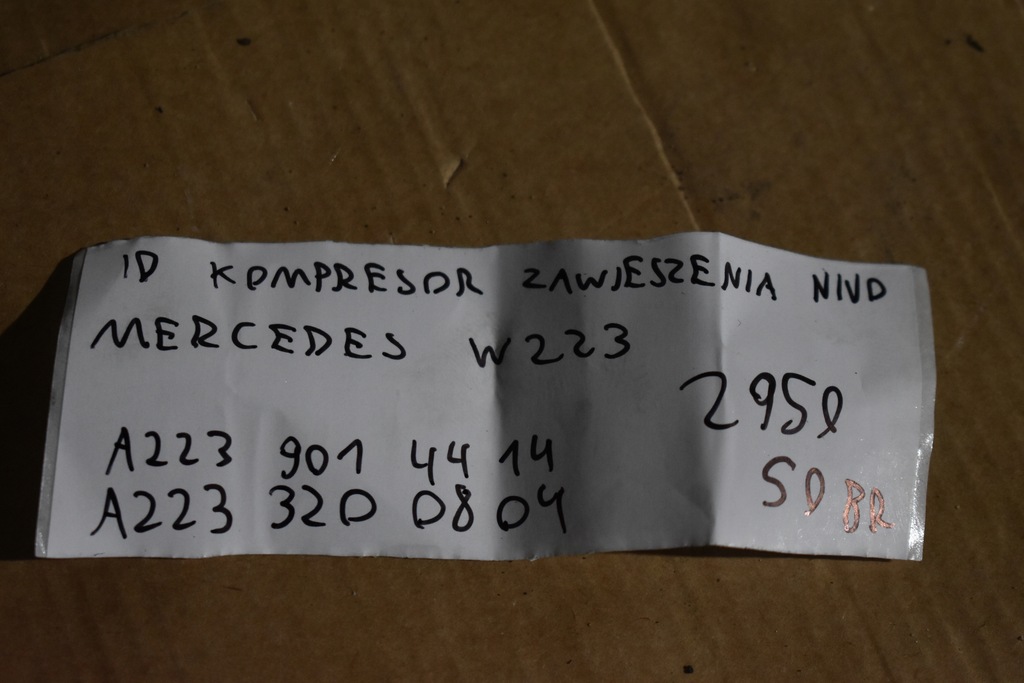 ID KOMPRESOR ZAWIESZENIA NIVO
MERCEDES W223
2950
A223 901 44 14
SD BR
A223 320 08 04